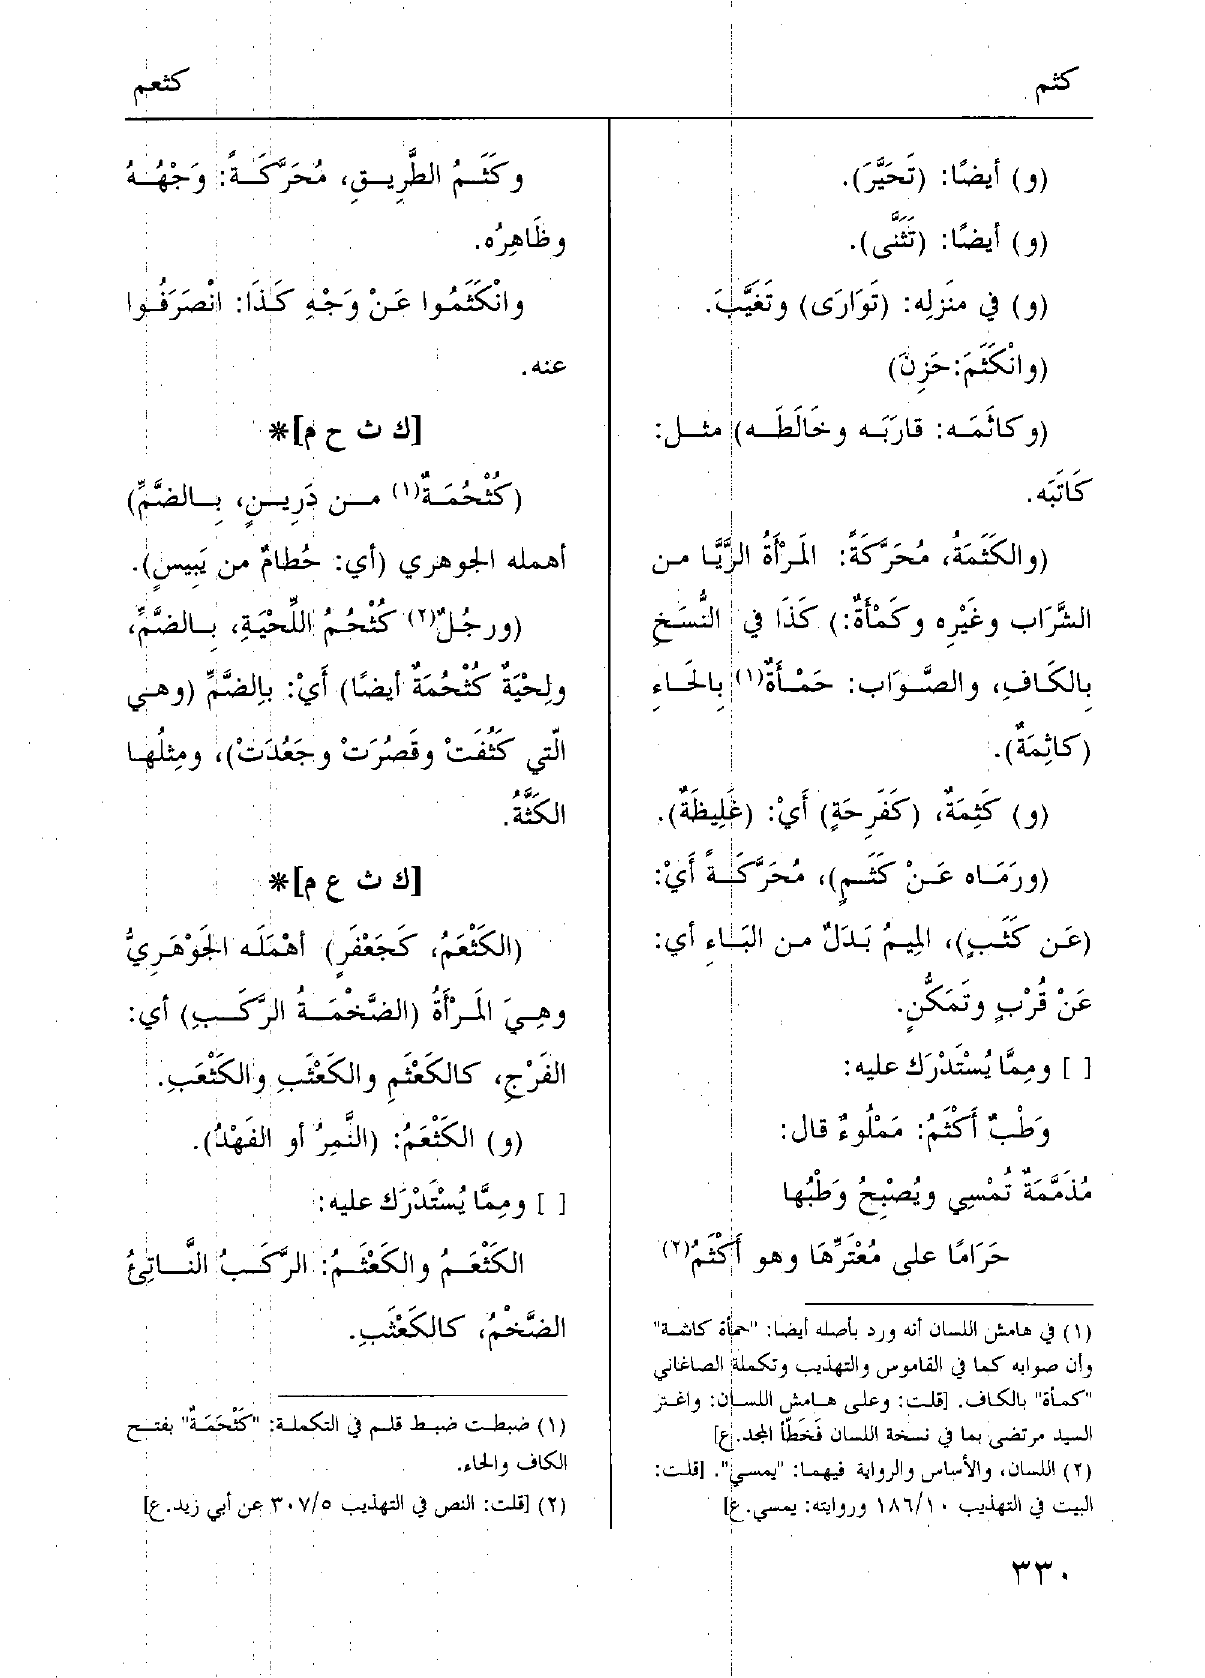 كثم
كثعم
(و) أيضًا: (تَحَيَّرَ).
(و) أيضًا: (تَثَنَّى).
(و) في منَزلِه: (تَوَارَى) وتَغَيَّبَ.
(وانْكَثَمَ: حَزِنَ)
(وكاثَمَه: قارَبَه وخَالَطَه) مثل:
كَاثَبَه.
(والكَثَمَةُ، مُحَرَّكَةً: المَرْأَةُ الرَّيَّا من
الشَّرَاب وغَيْرِه وكَمْأَةٌ:) كَذَا في النُّسَخِ
بِالكَافِ، والصَّوَاب: حَمْأَةٌ(١) بِالحَاءِ
(كاثِمَةٌ).
(و) كَثِمَةٌ، (كَفَرِحَةٍ) أَيْ: (غَلِيظَةٌ).
(ورَمَاه عَنْ كَثَمٍ)، مُحَرَّكَةً أَيْ:
(عَن كَثَبٍ)، المِيمُ بَدَلٌ من البَاءِ أي:
عَنْ قُرْبٍ وتَمَكُّنٍ.
[ ] ومِمَّا يُسْتَدْرَك عليه:
وَطْبٌ أَكْثَمُ: مَمْلُوءٌ قال:
مُذَمَّمَةٌ تُمْسِي ويُصْبِحُ وَطْبُها
حَرَامًا على مُعْتَرِّهَا وهو أَكْثَمُ(٢)
(١) في هامش اللسان أنه ورد بأصله أيضا: "حمأة كاثمة"
وأن صوابه كما في القاموس والتهذيب وتكملة الصاغاني
"كمأة" بالكاف. [قلت: وعلى هامش اللسان: واغتر
السيد مرتضى بما في نسخة اللسان فَخطَّأ المجد.ع]
(٢) اللسان، والأساس والرواية فيهما: "يمسي". [قلت:
البيت في التهذيب ١٨٦/١٠ وروايته: يمسي.ع]
وكَثَمُ الطَّرِيقِ، مُحَرَّكَةً: وَجْهُهُ
وظَاهِرُه.
وانْكَثَمُوا عَنْ وَجْهِ كَذَا: انْصَرَفُوا
عنه.
[ك ث ح م]*
(كُثْحُمَةٌ(١) من دَرِينٍ، بِالضَّمِّ)
أهمله الجوهري (أي: حُطامٌ من يَبِيسٍ).
(ورجُلٌ(٢) كُثْحُمُ اللِّحْيَةِ، بِالضَّمِّ،
ولِحْيَةٌ كُثْحُمَةٌ أيضًا) أَيْ: بِالضَّمِّ (وهي
الّتي كَثُفَتْ وقَصُرَتْ وجَعُدَتْ)، ومِثلُها
الكَثَّةُ.
[ك ث ع م]*
(الكَثْعَمُ، كَجَعْفَرٍ) أهْمَلَه الجَوْهَرِيُّ
وهِيَ المَرْأَةُ (الضَّخْمَةُ الرَّكَبِ) أي:
الفَرْجِ، كالكَعْثَمِ والكَعْثَبِ والكَثْعَبِ.
(و) الكَثْعَمُ: (النَّمِرُ أو الفَهْدُ).
[ ] ومِمَّا يُسْتَدْرَك عليه:
الكَثْعَمُ والكَعْثَمُ: الرَّكَبُ النَّاتِئُ
الضَّخْمُ، كالكَعْثَبِ.
(١) ضبطت ضبط قلم في التكملة: "كَثْحَمَةٌ" بفتح
الكاف والحاء.
(٢) [قلت: النص في التهذيب ٣٠٧/٥ عن أبي زيد.ع]
٣٣٠